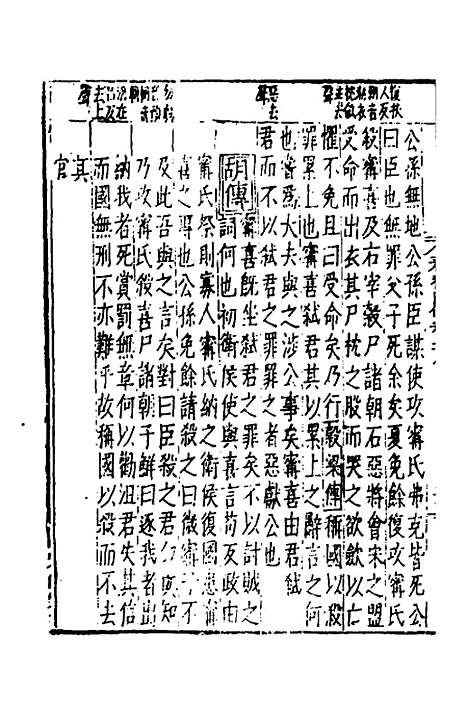 公孫無地公孫臣謀使攻甯氏弗克皆死公
曰臣也無罪父子死余矣夏免餘復攻甯氏
殺甯喜及右宰穀尸諸朝石惡將會宋之盟
受命而出衣其尸枕之股而哭之欲斂以亡
懼不免且曰受命矣乃行穀梁傳稱國以殺
罪累上也甯喜弒君其以累上之辭言之何
也嘗爲大夫與之涉公事矣甯喜由君弒
君而不以弒君之罪罪之者惡獻公也
胡傳甯喜既坐弒君之罪矣不以討賊之
詞何也初衛侯使與喜言苟反政由
甯氏祭則寡人甯氏納之衛侯復國患甯
喜之專也公孫免餘請殺之曰微甯子不
及此吾與之言矣對曰臣殺之君勿與知
乃攻甯氏殺喜尸諸朝子鮮曰逐我者出
納我者死賞罰無章何以勸沮君失其信
而國無刑不亦難乎故稱國以殺而不去
其官